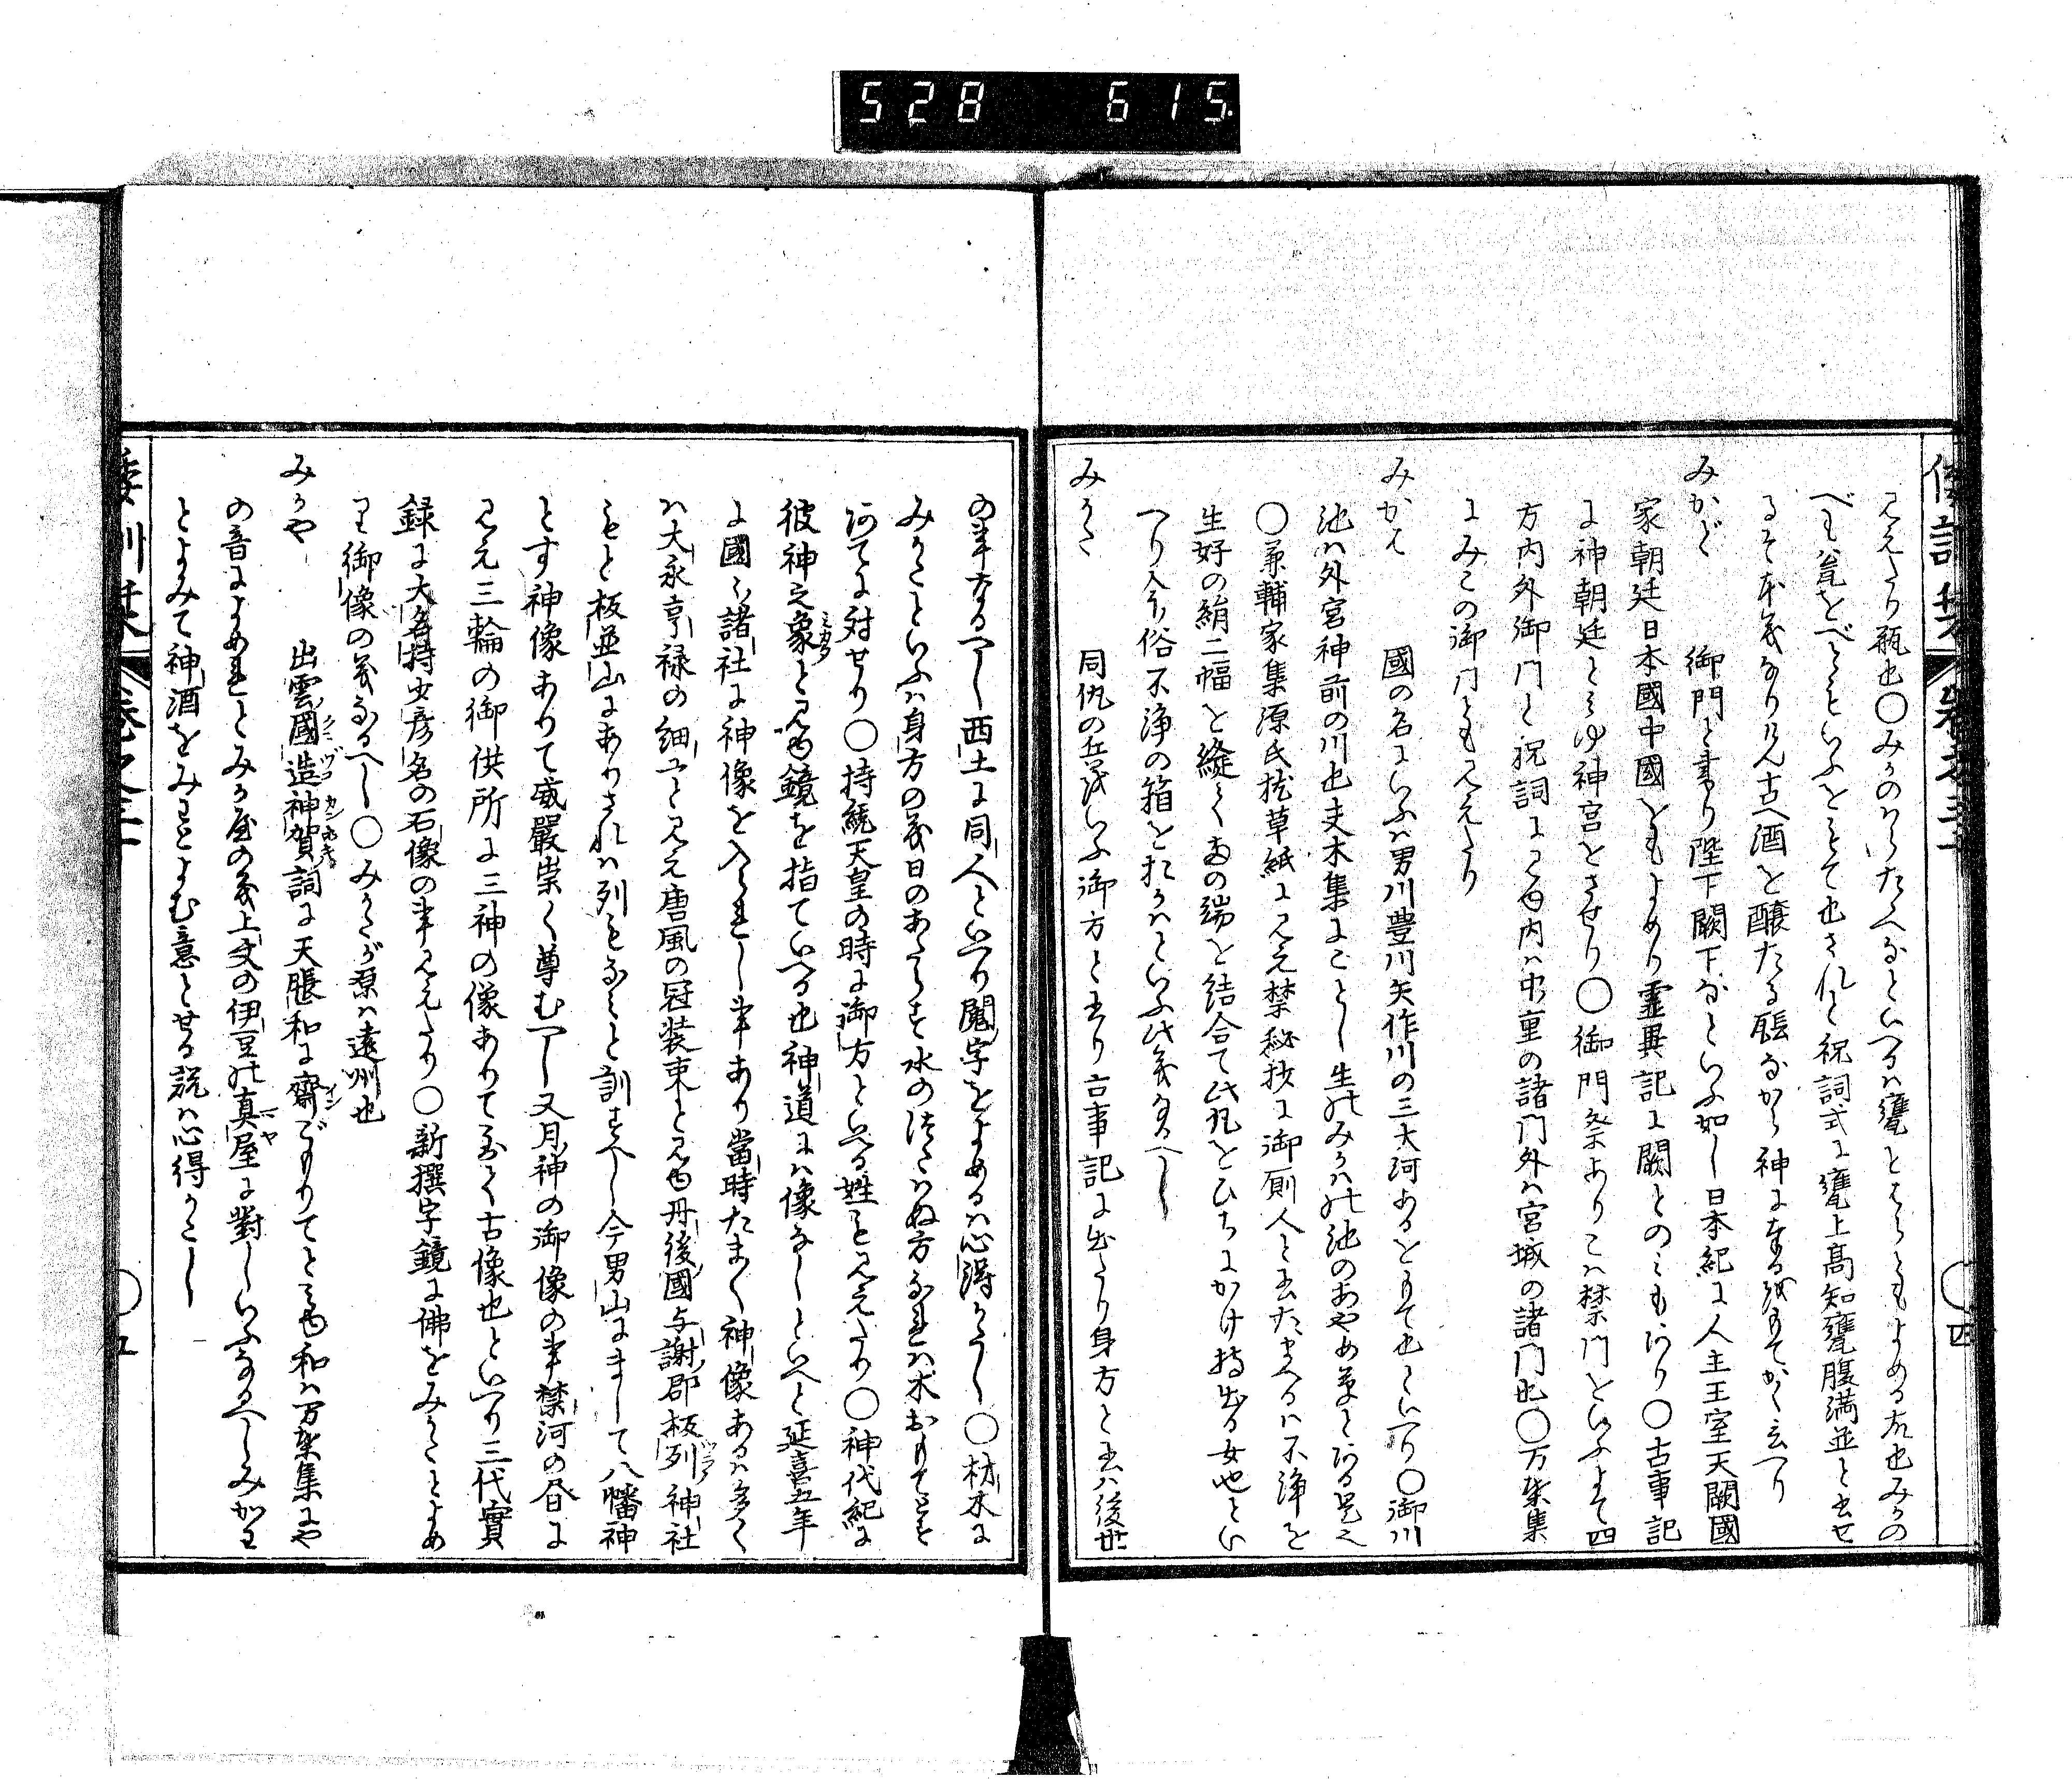 528 615
倭訓栞 卷之三十 ○四
みえたり瓶也○みかのはらたへなといへるは甕とはらともよめる左也みかの
べは瓮をべともいふをもて也されと祝詞式に甕上高知甕腹満並と書せ
るそ本義なりけん古へ酒を醸たる𤭖なから神に奉る故もてかく云へり
みかど 御門と書り陛下闕下なといふ如し日本紀に人主王室天闕國
家朝廷日本國中國をもよめり霊異記に闕とのみもあり○古事記
に神朝廷とみゆ神宮をさせり○御門祭ありこは禁門をいふよて四
方内外御門と祝詞にみゆ内は中重の諸門外は宮城の諸門也○万葉集
にみこの御門ともみえたり
みかは 國の名にいふは男川豊川矢作川の三大河あるをもて也といへり○御川
池は外宮神前の川也夫木集にことし生のみかはの池のあやめ草とある是也
○兼輔家集源氏枕草紙にみえ禁秘抄に御厠人と書たまへるは不浄を
生好の絹二幅を縫て両の端を結合て此凡をひちにかけ持出る女也とい
へり今俗不浄の箱をおかはといふ此義なるへし
みかた 同仇の兵をいふ御方と書り古事記に出たり身方と書は後世
の事なるへし西土に同人といへり䦧字をよめるは心得かたし○材木に
みかたといふは身方の義日のあたらさす水のはたはぬ方なれは木おもてとさす
何てに対せり○持統天皇の時に御方といへる姓もみえたり○神代紀に
彼神之象とみゆ鏡を指ていへる也神道には像なしといへと延喜五年
に國々諸社に神像を入られし事あり當時たまたま神像あるは多く
は大永享禄の細工とみえ唐風の冠装束とみゆ丹後國与謝郡板列神社
もと板並山にありされは列もなみと訓すへし今男山にまして八幡神
とす神像ありて威嚴崇く尊むへし又月神の御像の事禁河の昼に
みえ三輪の御供所に三神の像ありて至て古像也といへり三代實
録に大名持少彦名の石像の事みえたり○新撰字鏡に佛をみかたとよめ
るは御像の義なるへし○みかたが原は遠州也
みかや 出雲國造神賀詞に天𤭖和に齋ごもりてとみゆ和は万葉集にや
の音によめれとみか屋の義上文の伊豆の真屋に對しいふなるへしみかは
とよみて神酒をみわとよむ意とせる説は心得かたし
倭訓栞 卷之三十 ○五